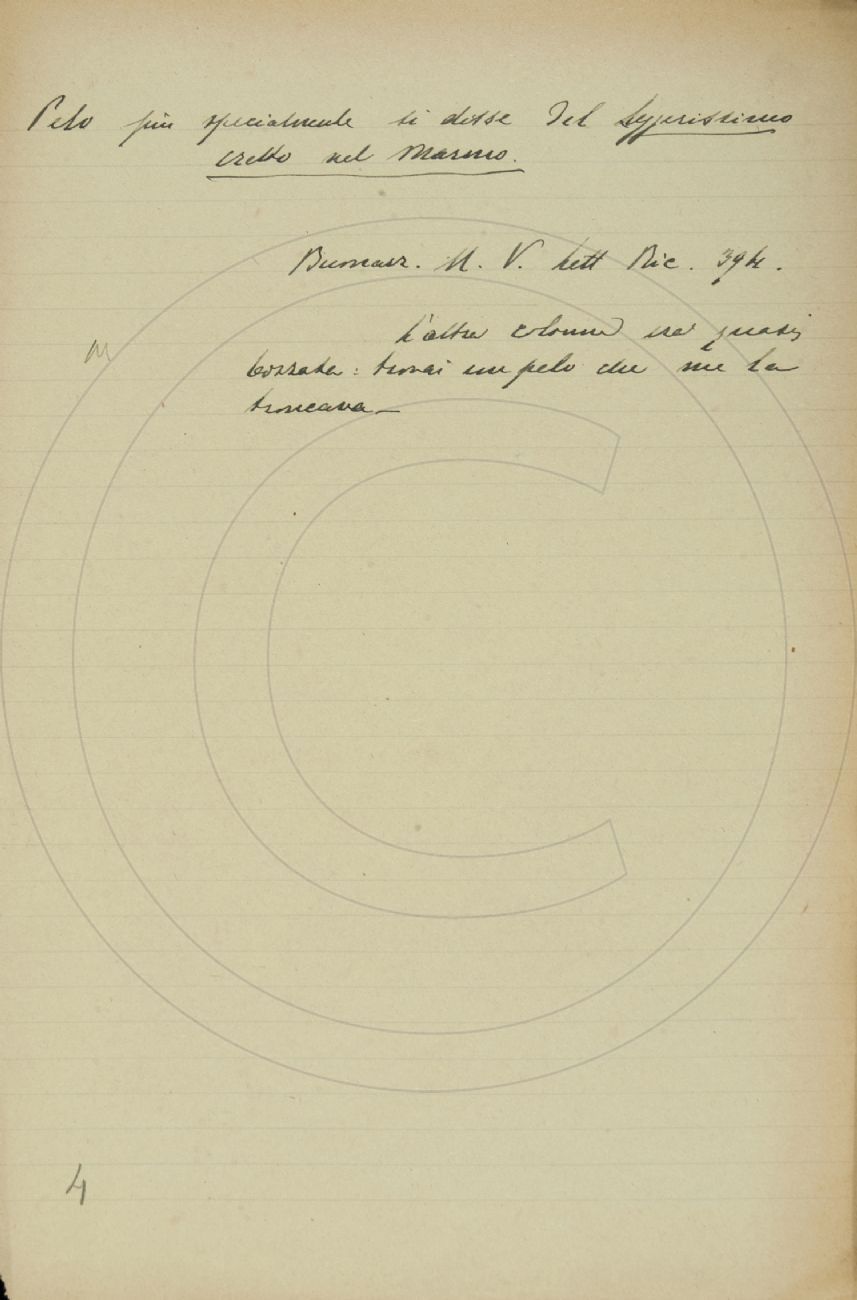 Pelo più specialmente si disse del leggerissimo
cretto nel Marmo.
Buonarr. M. V. Lett Ric. 394.
L'altra colonna era quasi
bozzata: trovai un pelo che me la
troncava_
4